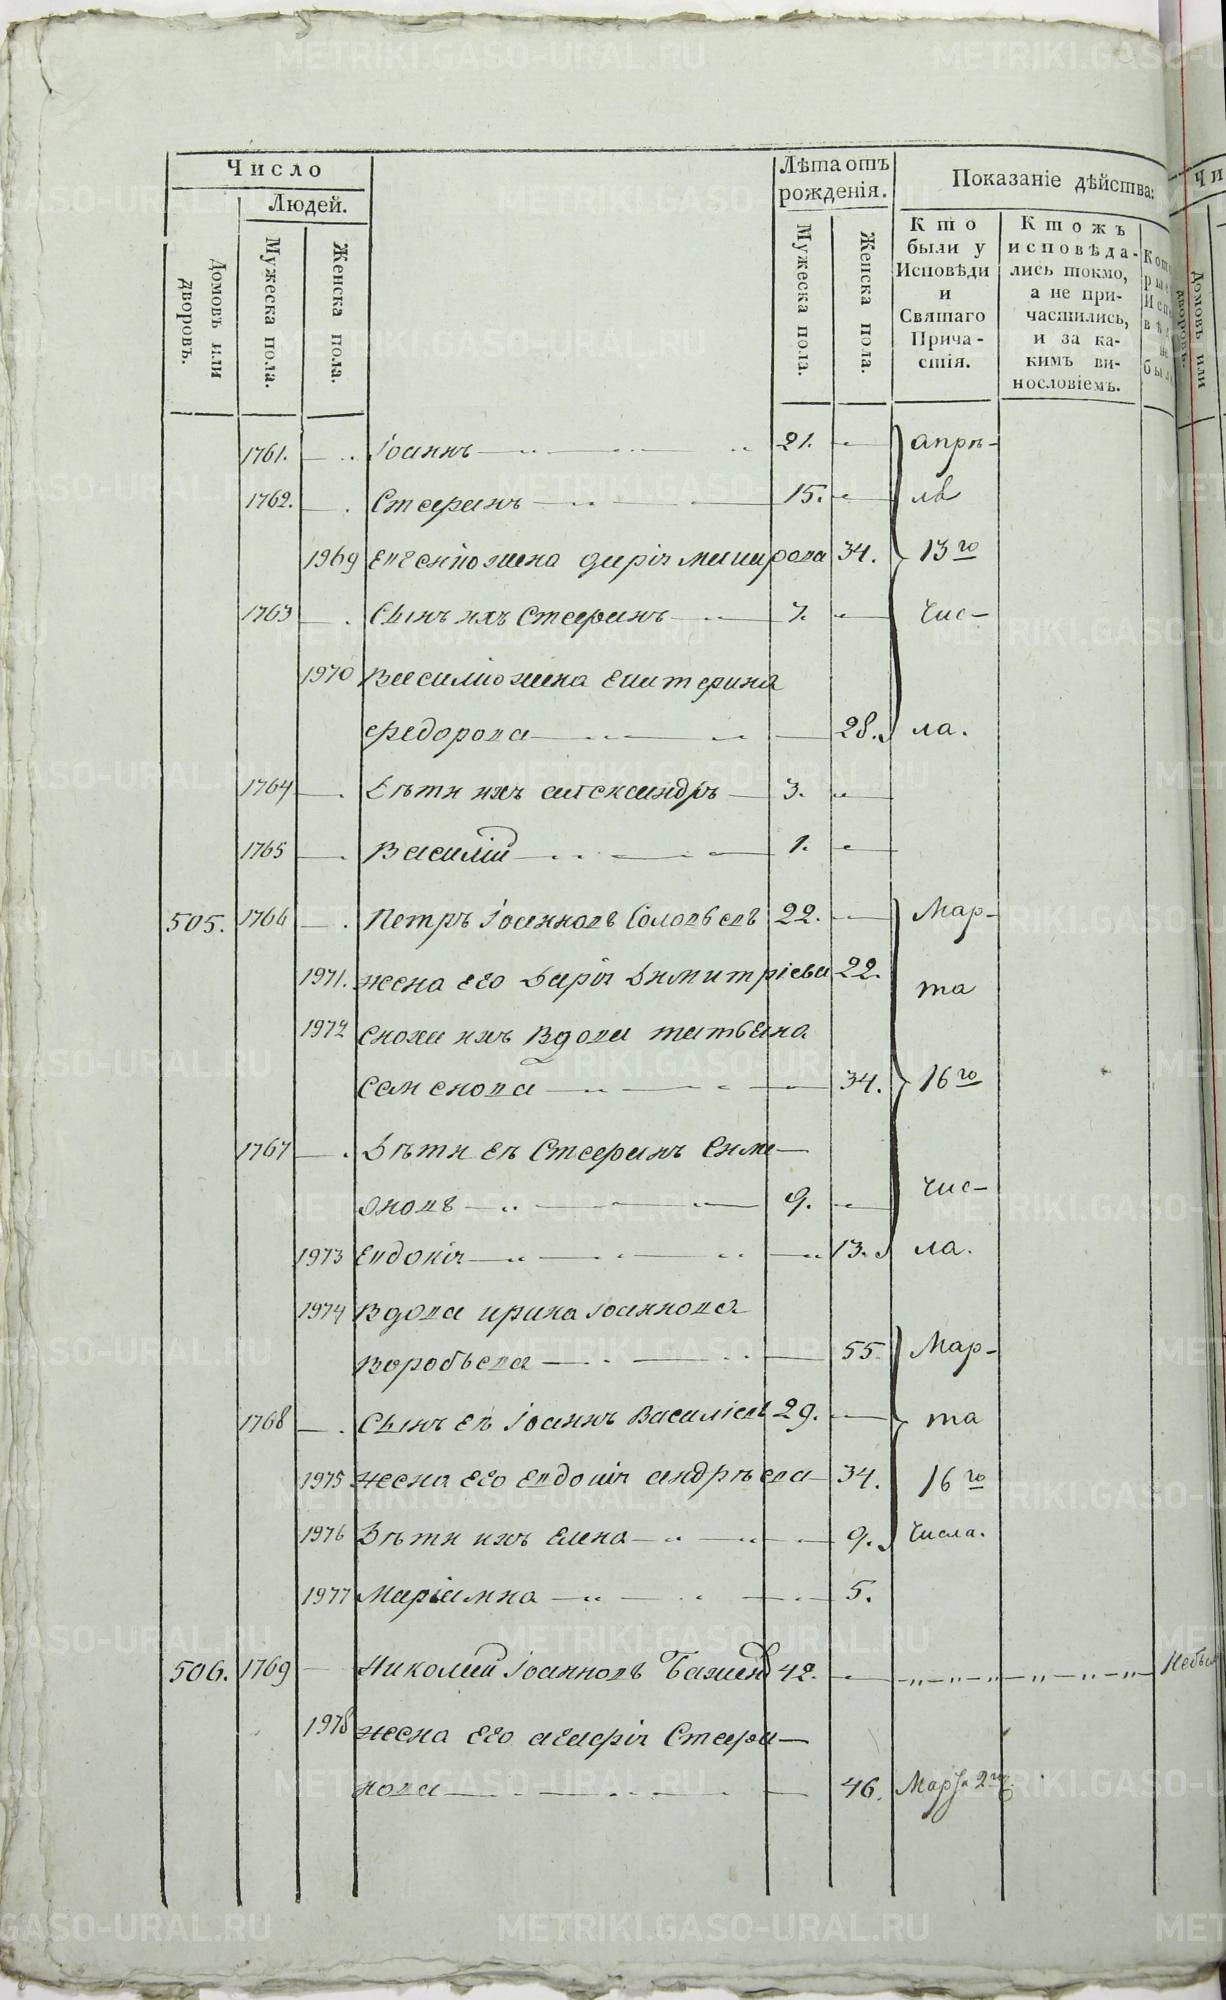 Число
Людей.
Домовъ или дворовъ.
Мужеска пола.
Женска пола.
Лѣта отъ рожденія.
Мужеска пола.
Женска пола.
Показаніе дѣйства:
Кто были у Исповѣди и Святаго Причастія.
Ктожъ исповѣдались токмо, а не причастились, и за какимъ винословіемъ.
1761. Іоаннъ 21. апрѣ-
1762. Стефанъ 15. ля
1969 Евгеніо жена 34. 13го
1763 Сынъ ихъ Стефанъ 7. чис-
1970 Василіо жена Екатерина
Федорова 28. ла.
1764 Дѣти ихъ александръ 3.
1765 Василій 1.
505. 1766 Петръ Іоанновъ Соловьевъ 22. Мар-
1971. жена его Дарія Димитріева 22. та
1972 Сноха ихъ Вдова татьяна
Семенова 34. 16го
1767 Дѣти ея Стефанъ Сим-
оновъ 9. чис-
1973 Евдокія 13. ла.
1974 Вдова ирина Іоаннова
Воробьева 55 Мар-
1768 Сынъ ея Іоаннъ Василіевъ 29. та
1975 жена его Евдокія андрѣева 34. 16го
1976 Дѣти ихъ Елена 9. числа.
1977 Маріамна 5.
506. 1769 Николай Іоанновъ Бажен 42. Небы
1978 жена его агафія Стефа-
нова 46. Мар 2го
METRIKI.GASO-URAL.RU